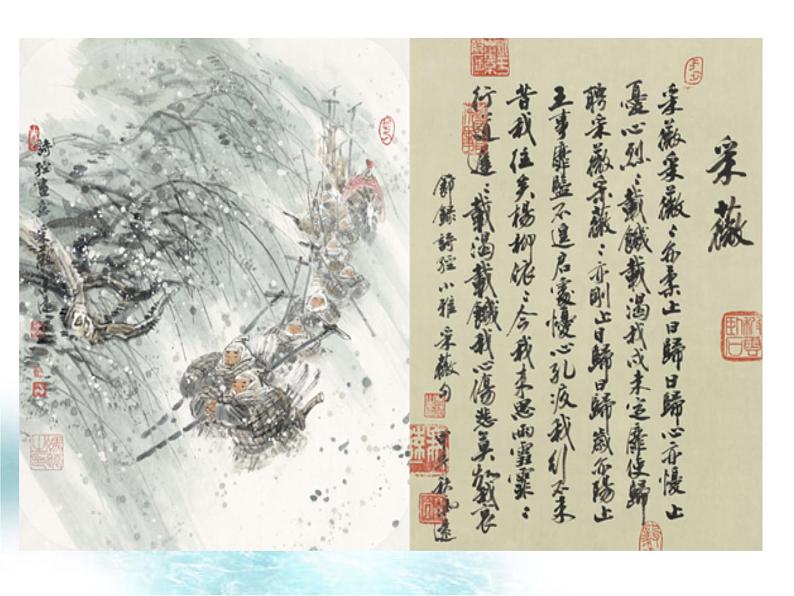 采薇
采薇采薇〻亦柔止曰歸曰歸心亦憂止
憂心烈〻載饑載渴我戍未定靡使歸
聘采薇采薇〻亦剛止曰歸曰歸歲亦陽止
王事靡盬不遑启處憂心孔疚我行不來
昔我往矣楊柳依〻今我來思雨雪霏〻
行道遲〻載渴載饑我心傷悲莫知我哀
節錄詩經小雅采薇句
詩經畫意采薇